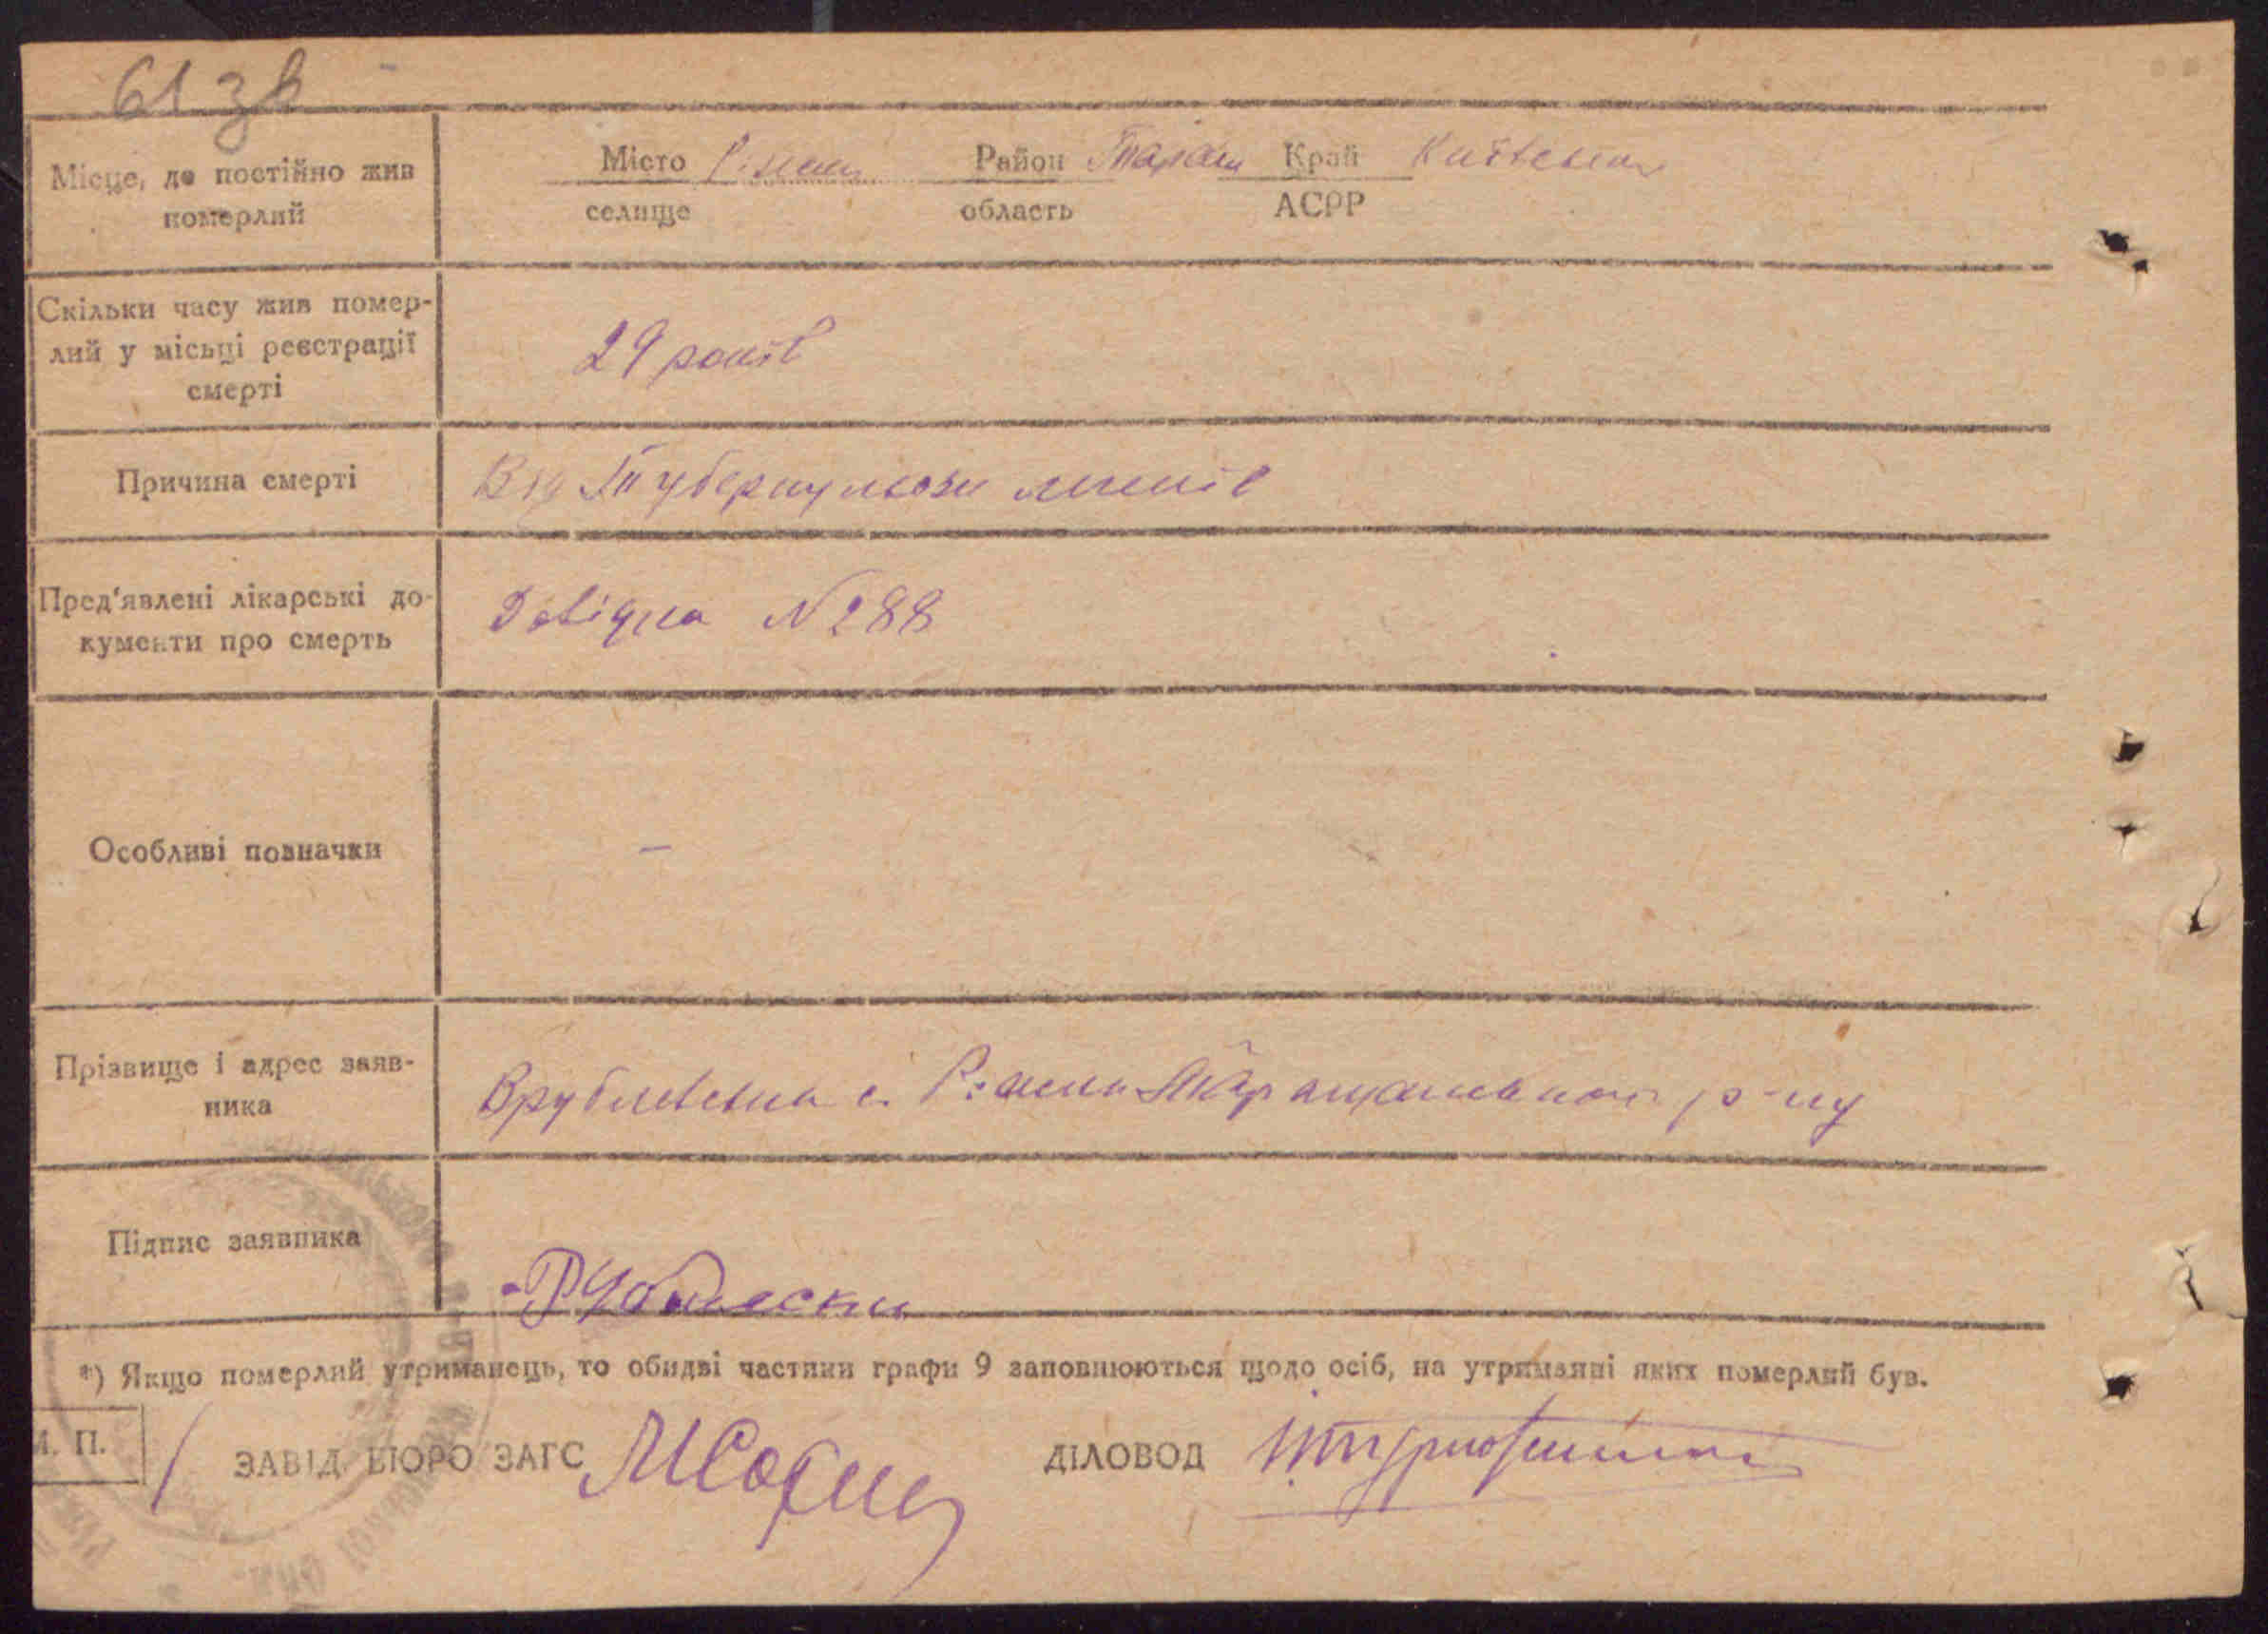 61 зв
Місце, де постійно жив
померлий
Місто Ріжки Район Таращ Край Київська
селище область АСРР
Скільки часу жив помер-
лий у місьці реєстрації
смерті
29 років
Причина смерті
Від Туберкульози легенів
Пред'явлені лікарські до-
кументи про смерть
Довідка N 288
Особливі позначки
–
Прізвище і адрес заяв-
ника
Врублевська с. Ріжки Таращанського р-ну
Підпис заявника
*) Якщо померлий утриманець, то обидві частини графи 9 заповнюються щодо осіб, на утриманні яких померлий був.
М. П.
ЗАВІД. БЮРО ЗАГС ДІЛОВОД